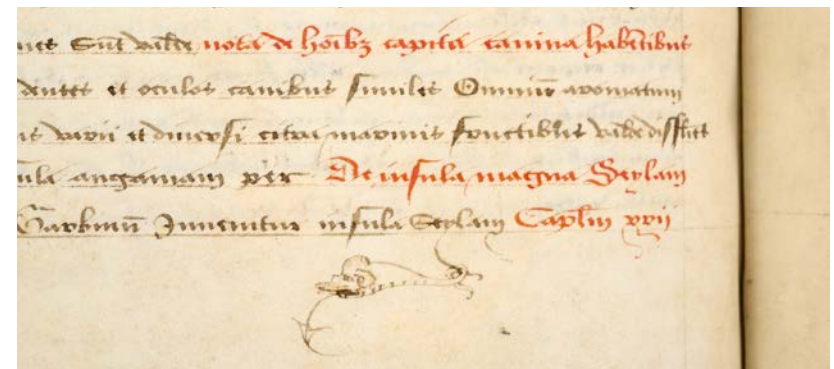 sūt valde nota de hoībꝫ capita canina habētibus
dentes et oculos canibus similes Omniū aromatum
varii et diversi citra marinis fructibus valde
angaman per De insula magna Seylam
Garbinū Invenitur insula Seylam Caplm xxij